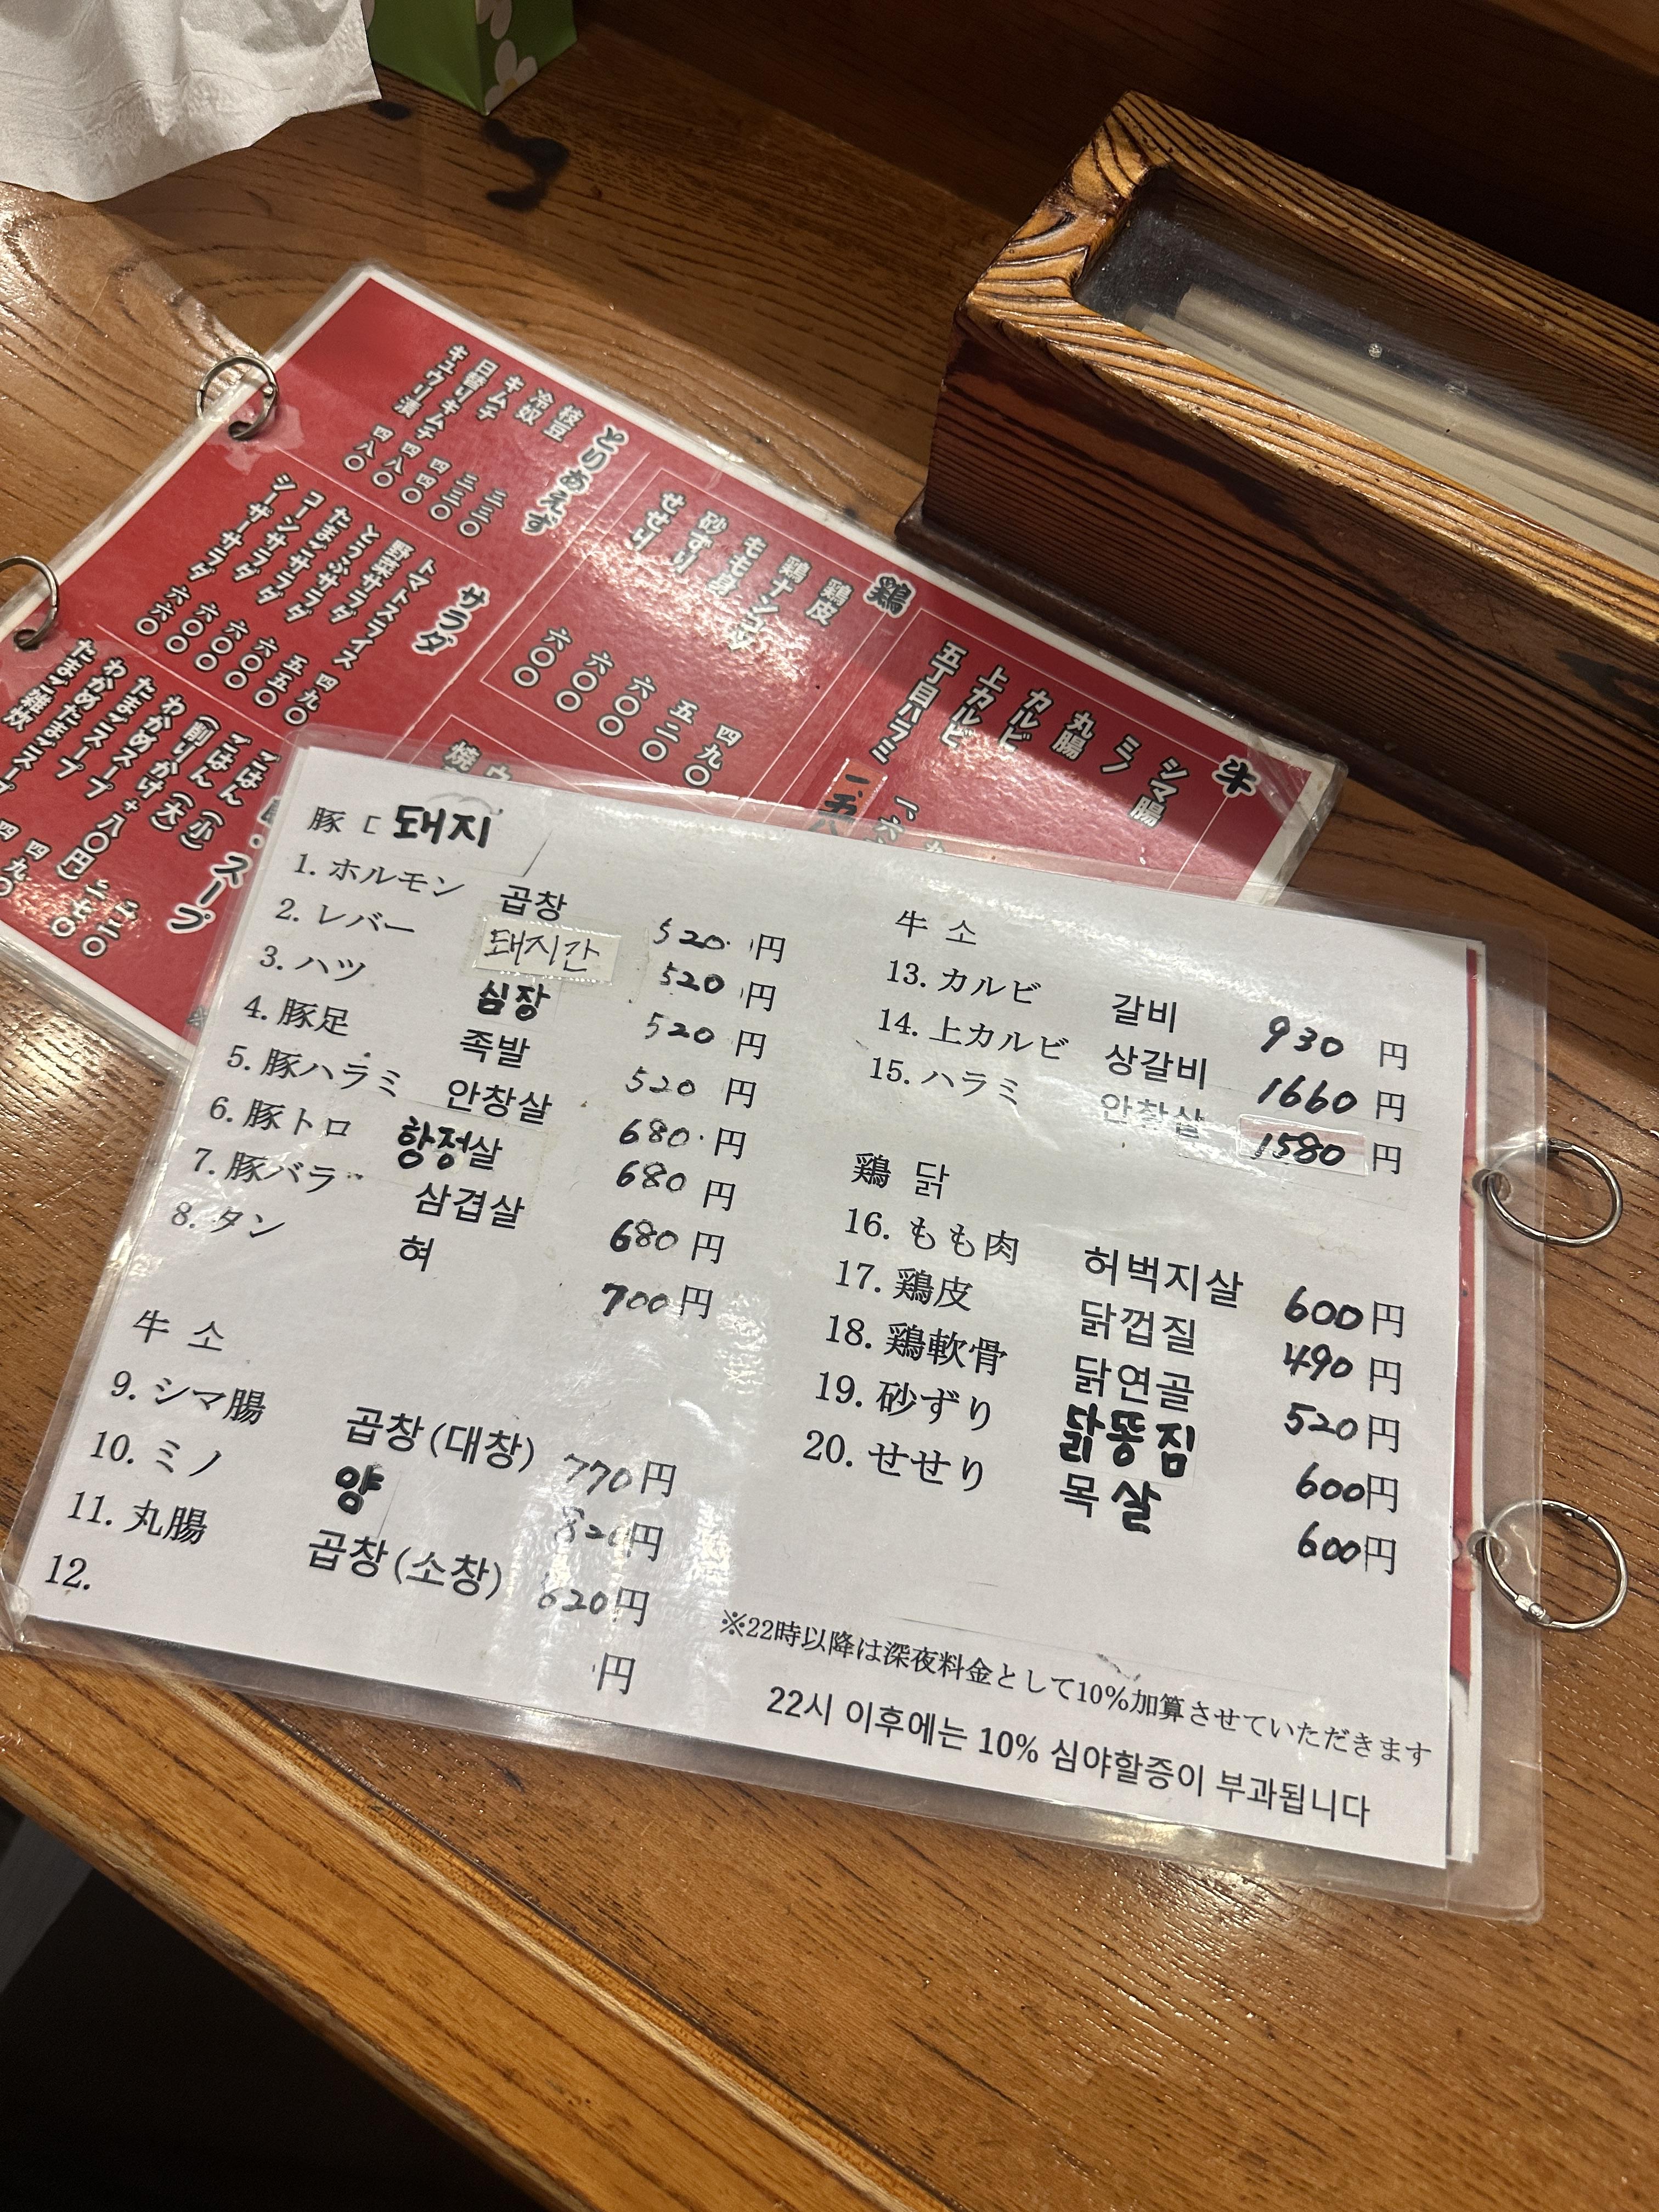 とりあえず
枝豆 三三〇
冷奴 三三〇
キムチ 四四〇
日替りキムチ 四八〇
キュウリ漬 四八〇
サラダ
トマトスライス 四九〇
野菜サラダ 五五〇
とうふサラダ 六〇〇
たまごサラダ 六〇〇
コーンサラダ 六〇〇
シーザーサラダ 六六〇
・スープ
ごはん (小) 二二〇
ごはん (大) 二七〇
(削りかけ+八〇円)
わかめスープ 四九〇
たまごスープ
わかめたまごスープ
たまご雑炊
鶏
鶏皮 四九〇
鶏ナンコツ 五二〇
もも身 六〇〇
砂ずり 六〇〇
せせり 六〇〇
牛
シマ腸
ミノ
丸腸
カルビ
上カルビ
五丁目ハラミ
豚 돼지
1. ホルモン 곱창 520 円
2. レバー 돼지간 520 円
3. ハツ 심장 520 円
4. 豚足 족발 520 円
5. 豚ハラミ 안창살 680 円
6. 豚トロ 항정살 680 円
7. 豚バラ 삼겹살 680 円
8. タン 혀 700 円
牛 소
9. シマ腸 곱창(대창) 770円
10. ミノ 양 820円
11. 丸腸 곱창(소창) 820円
12. 円
牛 소
13. カルビ 갈비 930 円
14. 上カルビ 상갈비 1660 円
15. ハラミ 안창살 1580 円
鶏 닭
16. もも肉 허벅지살 600円
17. 鶏皮 닭껍질 490 円
18. 鶏軟骨 닭연골 520円
19. 砂ずり 닭똥집 600円
20. せせり 목살 600円
※22時以降は深夜料金として10%加算させていただきます
22시 이후에는 10% 심야할증이 부과됩니다